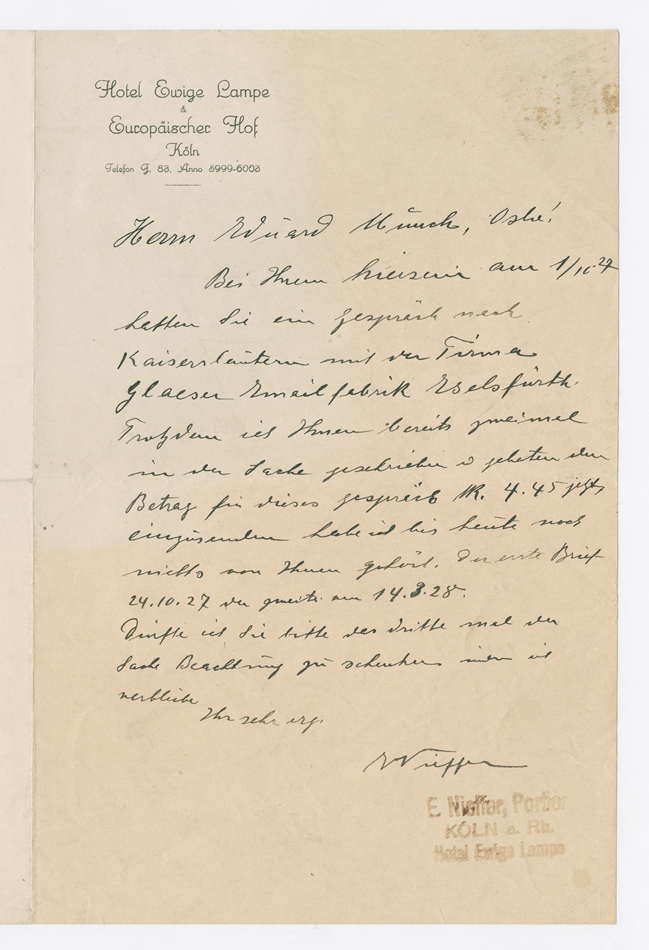 Hotel Ewige Lampe
&
Europäischer Hof
Köln
Telefon J. 83, Anno 5999-6003
Herrn Eduard Münch, Oslo!
Bei Ihrem Hiersein am 1/10 27
hatten Sie ein Gespräch nach
Kaiserslautern mit der Firma
Glaeser Emailfabrik Eselsfürth.
Trotzdem ich Ihnen bereits zweimal
in der Sache geschrieben u gebeten den
Betrag für dieses Gespräch M. 4.45
einzusenden habe ich bis heute noch
nichts von Ihnen gehört. Der erste Brief
24.10.27 der zweite am 14.3.28.
Dürfte ich Sie bitte das dritte mal der
Sache Beachtung zu schenken indem ich
verbleibe
Ihr sehr erg.
E Nieffer
E. Nieffer, Portier
KÖLN a. Rh.
Hotel Ewige Lampe